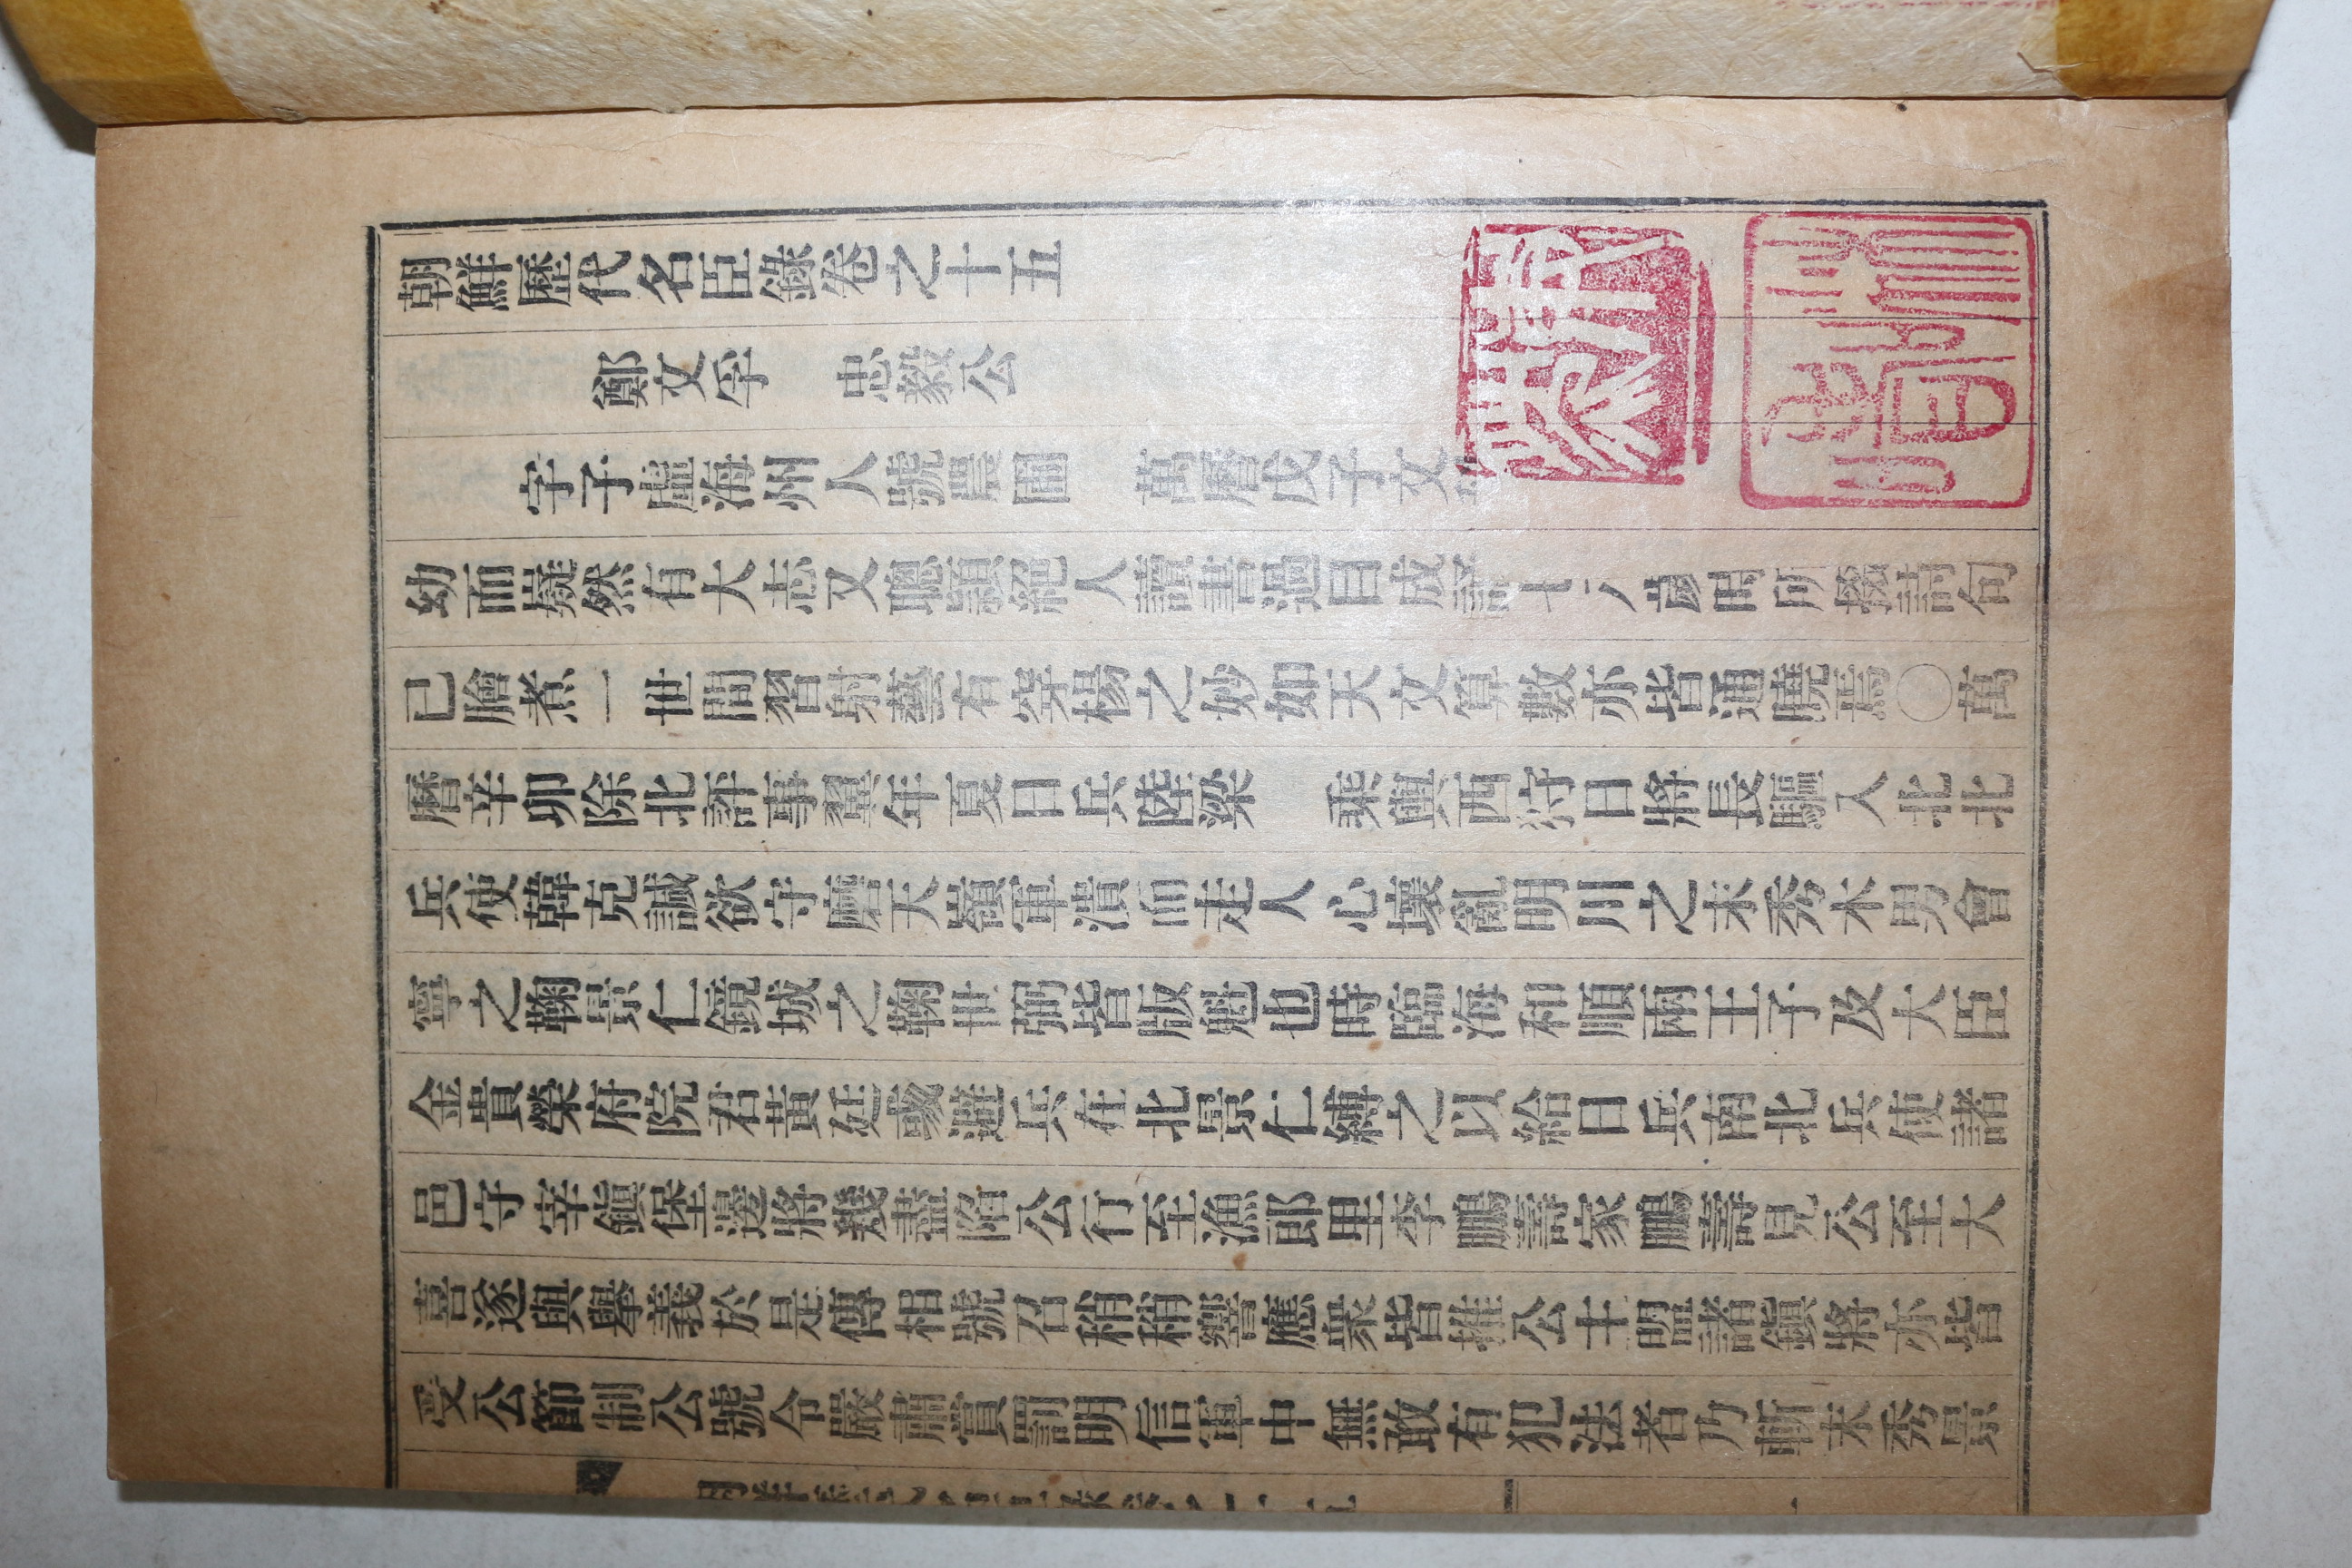 朝鮮歷代名臣錄卷之十五
鄭文孚 忠毅公
字子虛海州人號農圃 萬曆戊子文
幼而嶷然有大志又聰穎絕人讀書過目成誦七八歲時所播詩句
已膾煮一世間習射藝有穿楊之妙如天文算數亦皆通曉焉○萬
曆辛卯除北評事翼年夏日兵陸梁 乘輿西狩日將長驅入北北
兵使韓克諴欲守磨天嶺軍潰而走人心壞亂明川之末秀木男會
寧之鞠景仁鏡城之鞠世弼皆叛魁也時臨海和順兩王子及大臣
金貴榮府院君黃廷彧避兵在北景仁縛之以給日兵南北兵使諸
邑守宰鎭保邊將幾盡陷公行至漁郞里李鵬壽家鵬壽見公至大
喜遂與擧義於是傳相號召稍稍響應衆皆推公主盟諸鎭將亦皆
受公節制公號令嚴肅賞罰明信軍中無敢有犯法者乃斬末秀景